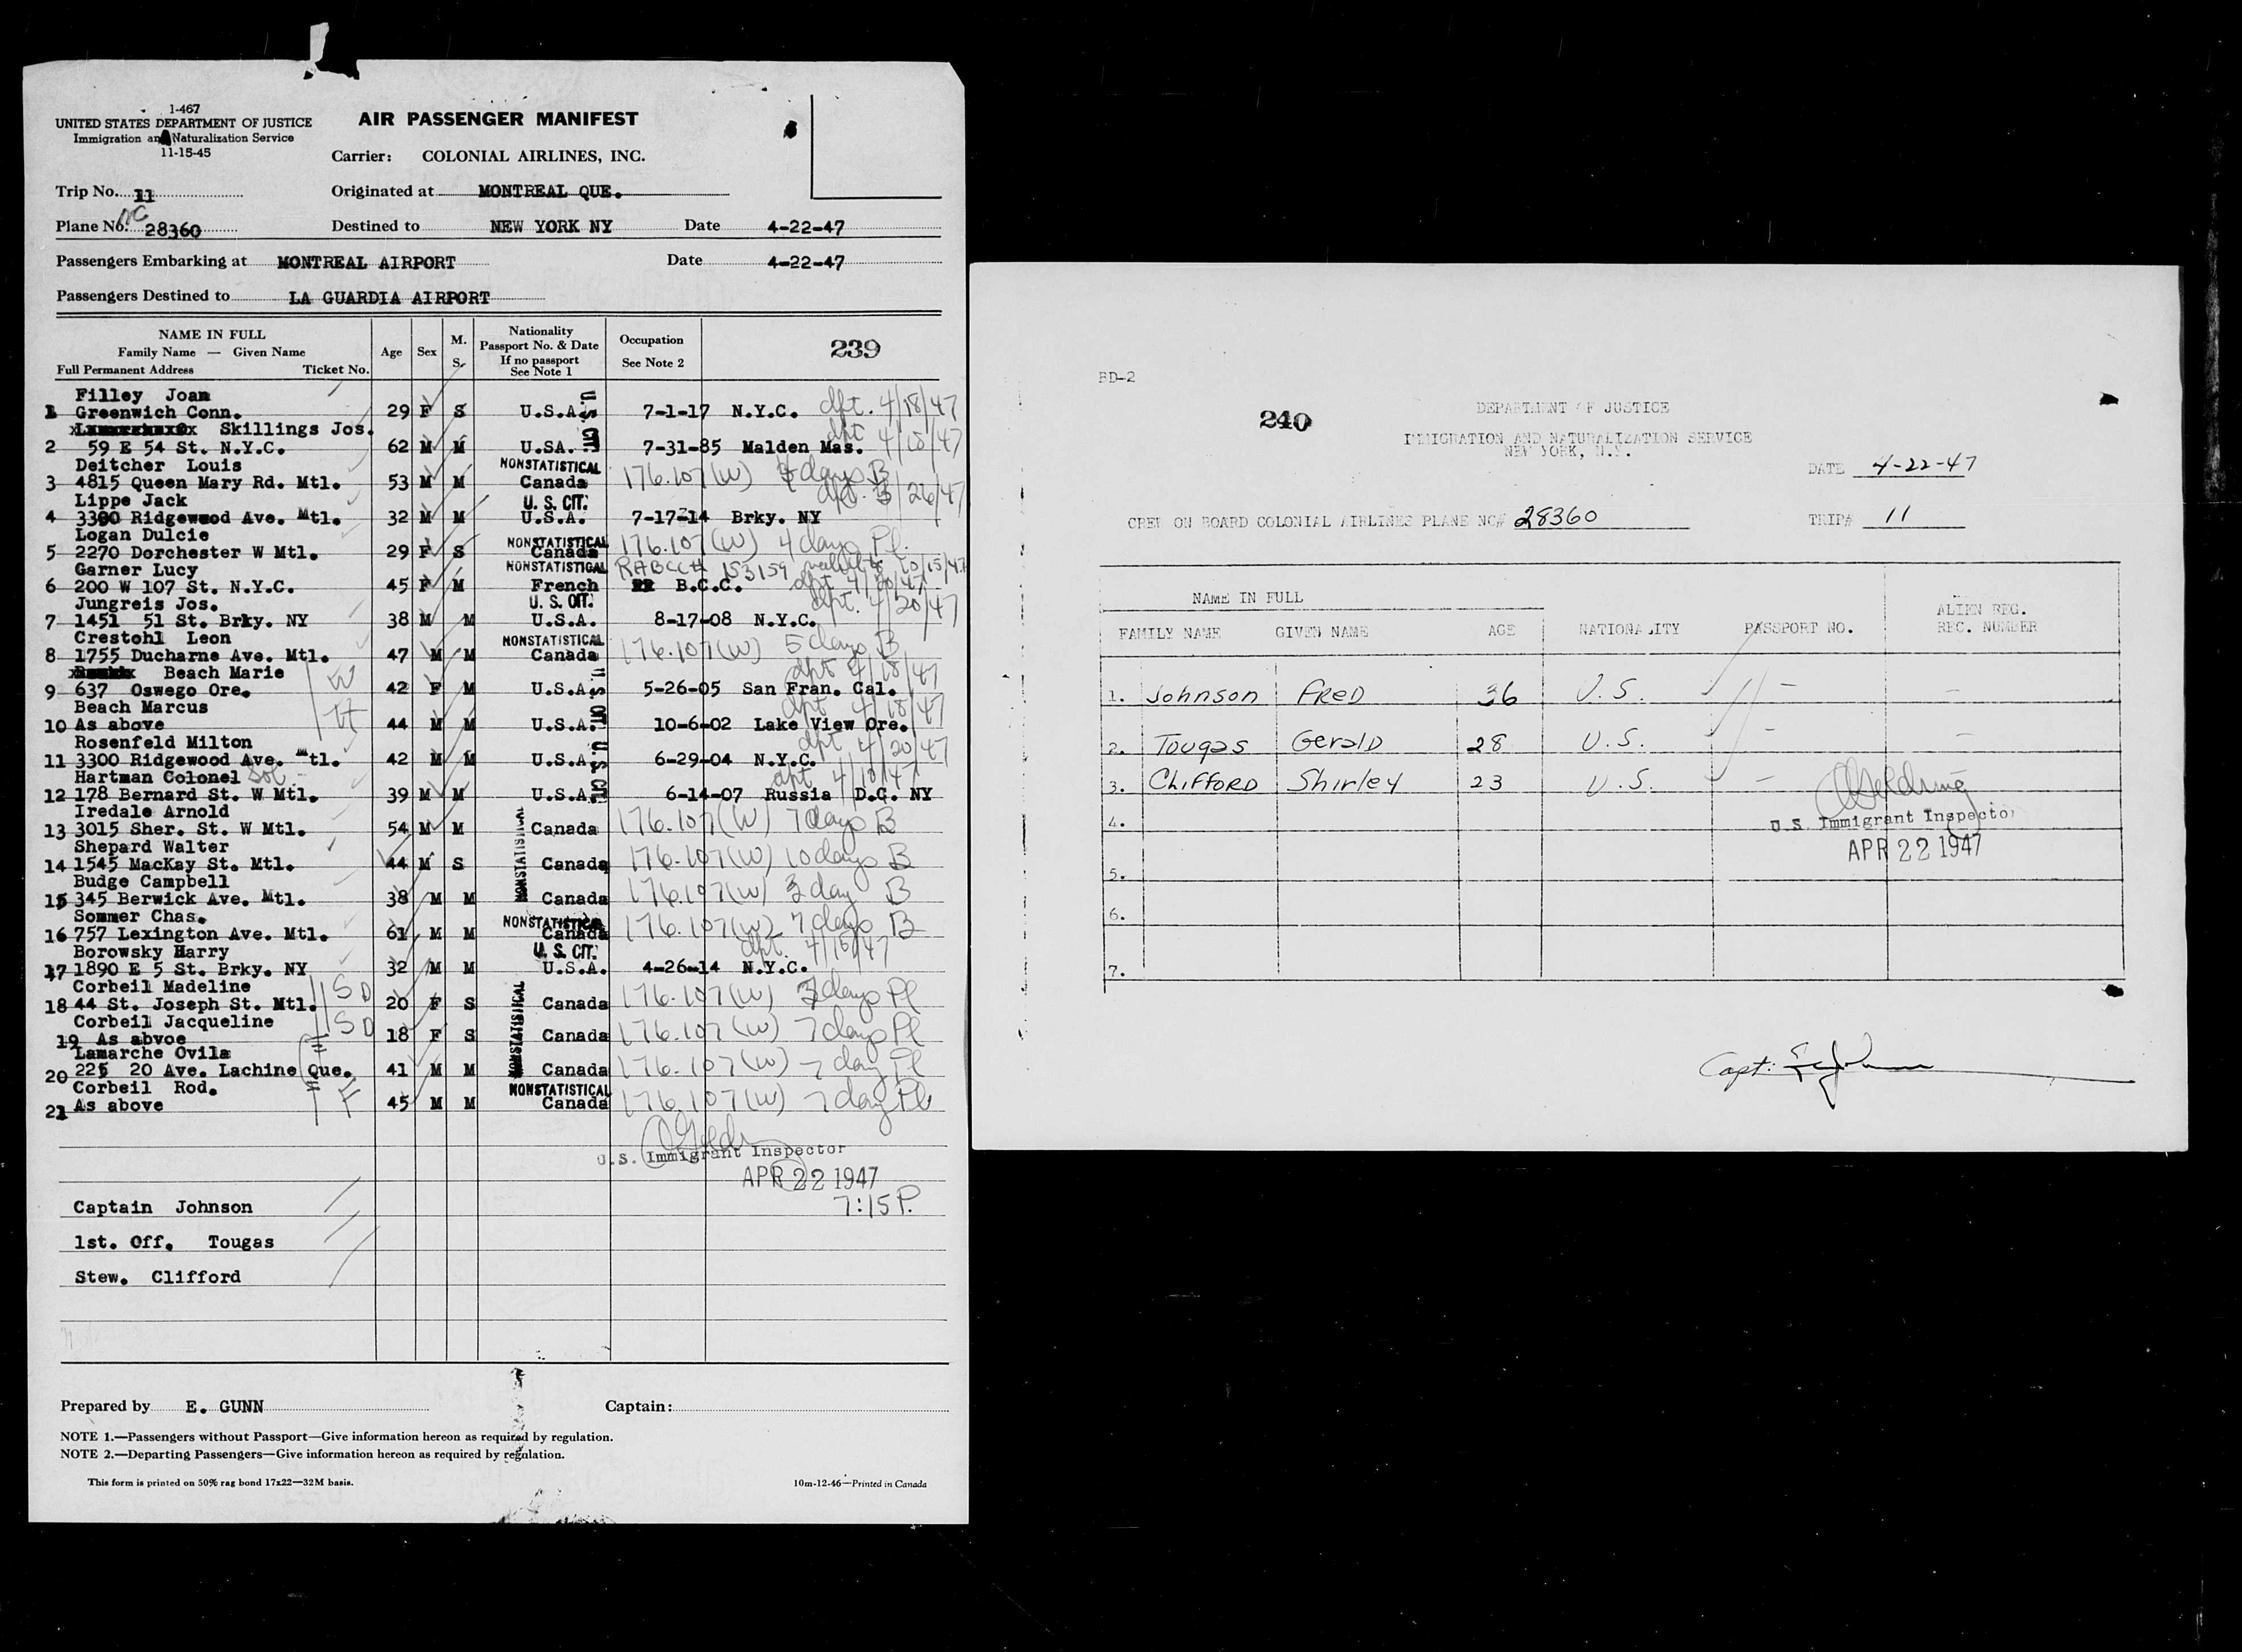 1-467
UNITED STATES DEPARTMENT OF JUSTICE
Immigration and Naturalization Service
11-15-45
AIR PASSENGER MANIFEST
Carrier: COLONIAL AIRLINES, INC.
Trip No. 11 Originated at MONTREAL QUE.
NC
Plane No. 28360 Destined to NEW YORK NY Date 4-22-47
Passengers Embarking at MONTREAL AIRPORT Date 4-22-47
Passengers Destined to LA GUARDIA AIRPORT
NAME IN FULL
Family Name — Given Name
Full Permanent Address Ticket No.
Age Sex M. S.
Nationality
Passport No. & Date
If no passport
See Note 1
Occupation
See Note 2
239
Filley Joan
1 Greenwich Conn. 29 F S U.S.A. U.S. CIT. 7-1-17 N.Y.C. dpt. 4/18/47
Skillings Jos.
2 59 E 54 St. N.Y.C. 62 M M U.SA. 7-31-85 Malden Mas. dpt 4/18/47
Deitcher Louis NONSTATISTICAL
3 4815 Queen Mary Rd. Mtl. 53 M M Canada 176.107(W) days B
Lippe Jack U. S. CIT. dpt. 3/26/47
4 3300 Ridgewood Ave. Mtl. 32 M M U.S.A. 7-17-14 Brky. NY
Logan Dulcie NONSTATISTICAL
5 2270 Dorchester W Mtl. 29 F S Canada 176.107(W) 4 days Pl.
Garner Lucy NONSTATISTICAL RABCC# 153159 valid to 10/15/47
6 200 W 107 St. N.Y.C. 45 F M French B.C.C. dpt 4/20/47
Jungreis Jos. U. S. CIT. dpt. 4/20/47
7 1451 51 St. Brky. NY 38 M M U.S.A. 8-17-08 N.Y.C.
Crestohl Leon NONSTATISTICAL
8 1755 Ducharne Ave. Mtl. 47 M M Canada 176.107(W) 5 days B
Beach Marie W dpt 4/18/47
9 637 Oswego Ore. 42 F M U.S.A. U.S. CIT. 5-26-05 San Fran. Cal.
Beach Marcus H dpt 4/18/47
10 As above 44 M M U.S.A. 10-6-02 Lake View Ore.
Rosenfeld Milton dpt 4/20/47
11 3300 Ridgewood Ave. Mtl. 42 M M U.S.A. U.S. CIT. 6-29-04 N.Y.C.
Hartman Colonel Sol dpt 4/18/47
12 178 Bernard St. W Mtl. 39 M M U.S.A. 6-14-07 Russia D.C. NY
Iredale Arnold
13 3015 Sher. St. W Mtl. 54 M M Canada NONSTATISTICAL 176.107(W) 7 days B
Shepard Walter
14 1545 MacKay St. Mtl. 44 M S Canada 176.107(W) 10 days B
Budge Campbell
15 345 Berwick Ave. Mtl. 38 M M Canada 176.107(W) day B
Sommer Chas. NONSTATISTICAL
16 757 Lexington Ave. Mtl. 61 M M Canada 176.107(W) 7 days B
Borowsky Harry U. S. CIT. dpt. 4/18/47
17 1890 E 5 St. Brky. NY 32 M M U.S.A. 4-26-14 N.Y.C.
Corbeil Madeline SD
18 44 St. Joseph St. Mtl. 20 F S Canada NONSTATISTICAL 176.107(W) days Pl
Corbeil Jacqueline SD
19 As abvoe 18 F S Canada 176.107(W) 7 days Pl
Lamarche Ovila
20 225 20 Ave. Lachine Que. 41 M M Canada 176.107(W) 7 day Pl
Corbeil Rod. F NONSTATISTICAL
21 As above 45 M M Canada 176.107(W) 7 day Pl
U.S. Immigrant Inspector
APR 22 1947
7:15 P.
Captain Johnson
1st. Off. Tougas
Stew. Clifford
Prepared by E. GUNN Captain:
NOTE 1.—Passengers without Passport—Give information hereon as required by regulation.
NOTE 2.—Departing Passengers—Give information hereon as required by regulation.
This form is printed on 50% rag bond 17x22—32M basis. 10m-12-46—Printed in Canada
BD-2
240
DEPARTMENT OF JUSTICE
IMMIGRATION AND NATURALIZATION SERVICE
NEW YORK, N.Y.
DATE 4-22-47
CREW ON BOARD COLONIAL AIRLINES PLANE NC# 28360 TRIP# 11
NAME IN FULL
FAMILY NAME GIVEN NAME AGE NATIONALITY PASSPORT NO. ALIEN REG. REC. NUMBER
1. Johnson FRED 36 U.S. — —
2. Tougas Gerald 28 U.S. — —
3. Clifford Shirley 23 U.S. — —
4.
U.S. Immigrant Inspector
APR 22 1947
5.
6.
7.
Capt: